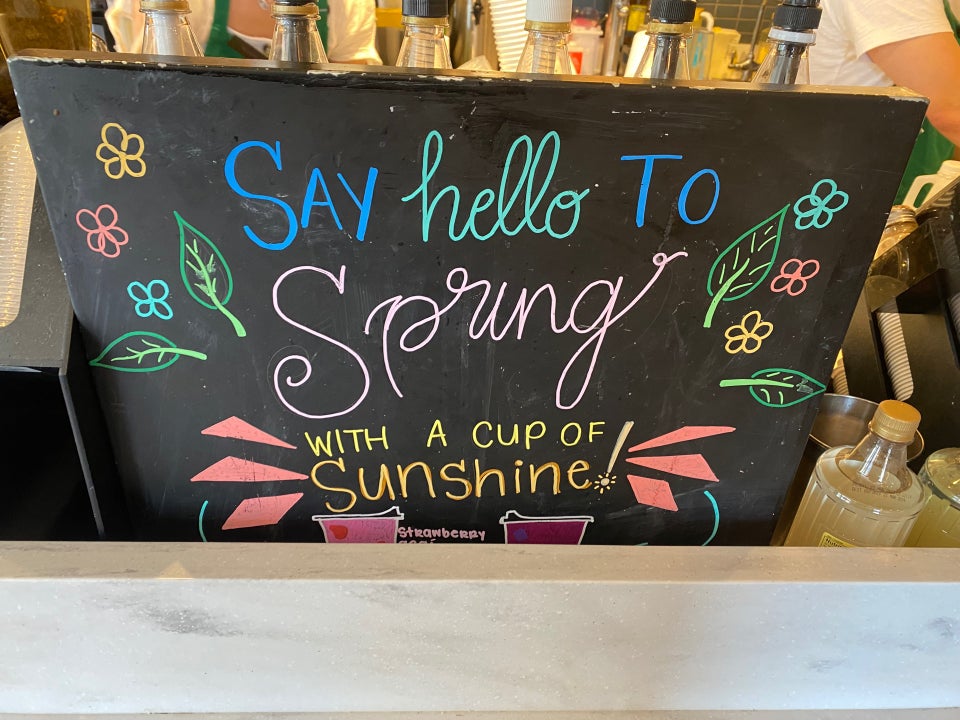 SAY hello TO
Spring
WITH A CUP OF
Sunshine!
Strawberry